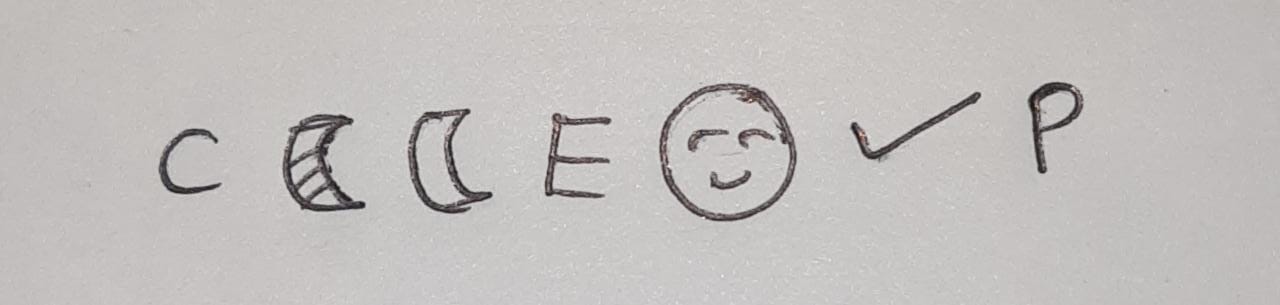 C E ✓ P